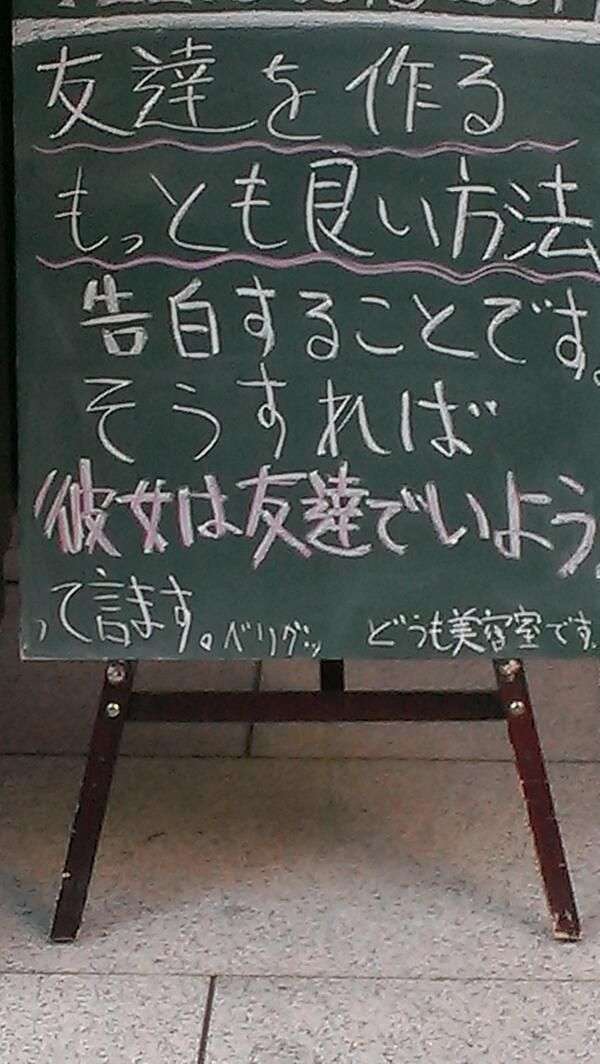 友達を作る
もっとも良い方法
告白することです。
そうすれば
"彼女は友達でいよう"
って言ます。ベリグッ どうも美容室です。